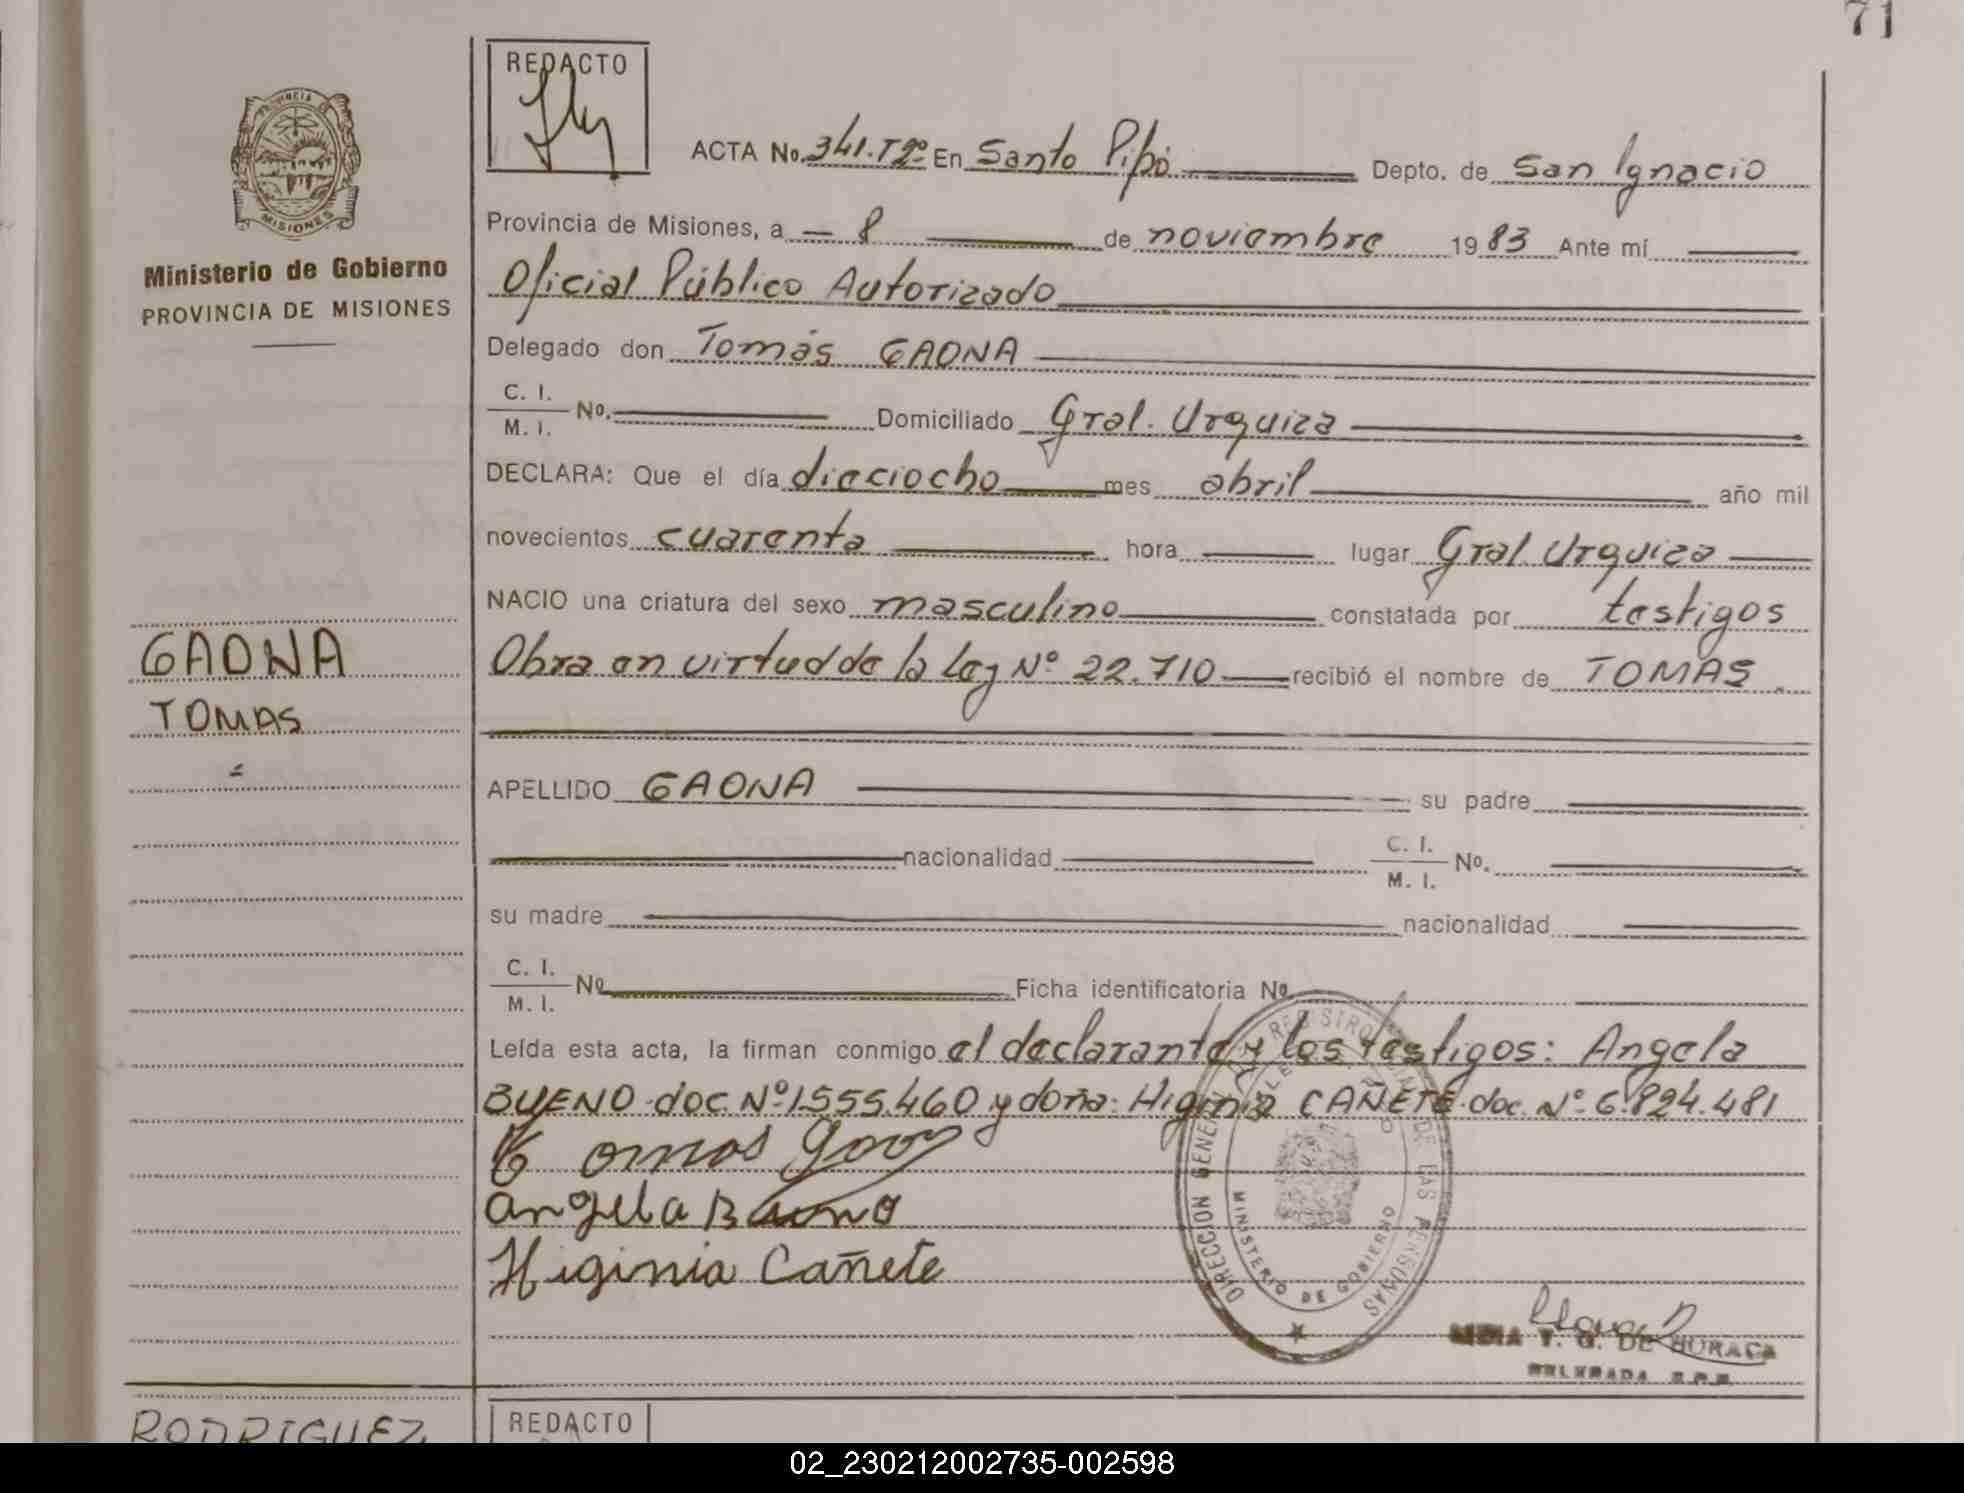 71
REDACTO
PROVINCIA DE
MISIONES
Ministerio de Gobierno
PROVINCIA DE MISIONES
ACTA No. 341.Tº2º En Santo Pipó Depto. de San Ignacio
Provincia de Misiones, a - 8 de noviembre 1983 Ante mí
Oficial Público Autorizado
Delegado don Tomás GAONA
C. I.
M. I. No. Domiciliado Gral. Urquiza
DECLARA: Que el día dieciocho mes abril año mil
novecientos cuarenta hora lugar Gral. Urquiza
NACIO una criatura del sexo masculino constatada por testigos
Obra en virtud de la Ley Nº 22.710 recibió el nombre de TOMAS
GAONA
TOMAS
APELLIDO GAONA su padre
nacionalidad C. I.
M. I. No.
su madre nacionalidad
C. I.
M. I. No Ficha identificatoria No
Leída esta acta, la firman conmigo el declarante y los testigos: Angela
BUENO doc Nº 1555.460 y doña: Higinia CAÑETE doc. Nº 6.824.481
Tomas
Angela Bueno
Higinia Cañete
DIRECCION GENERAL REGISTRO DE LAS PERSONAS
MINISTERIO DE GOBIERNO
T. G. DE HURACA
RODRIGUEZ
REDACTO
02_230212002735-002598